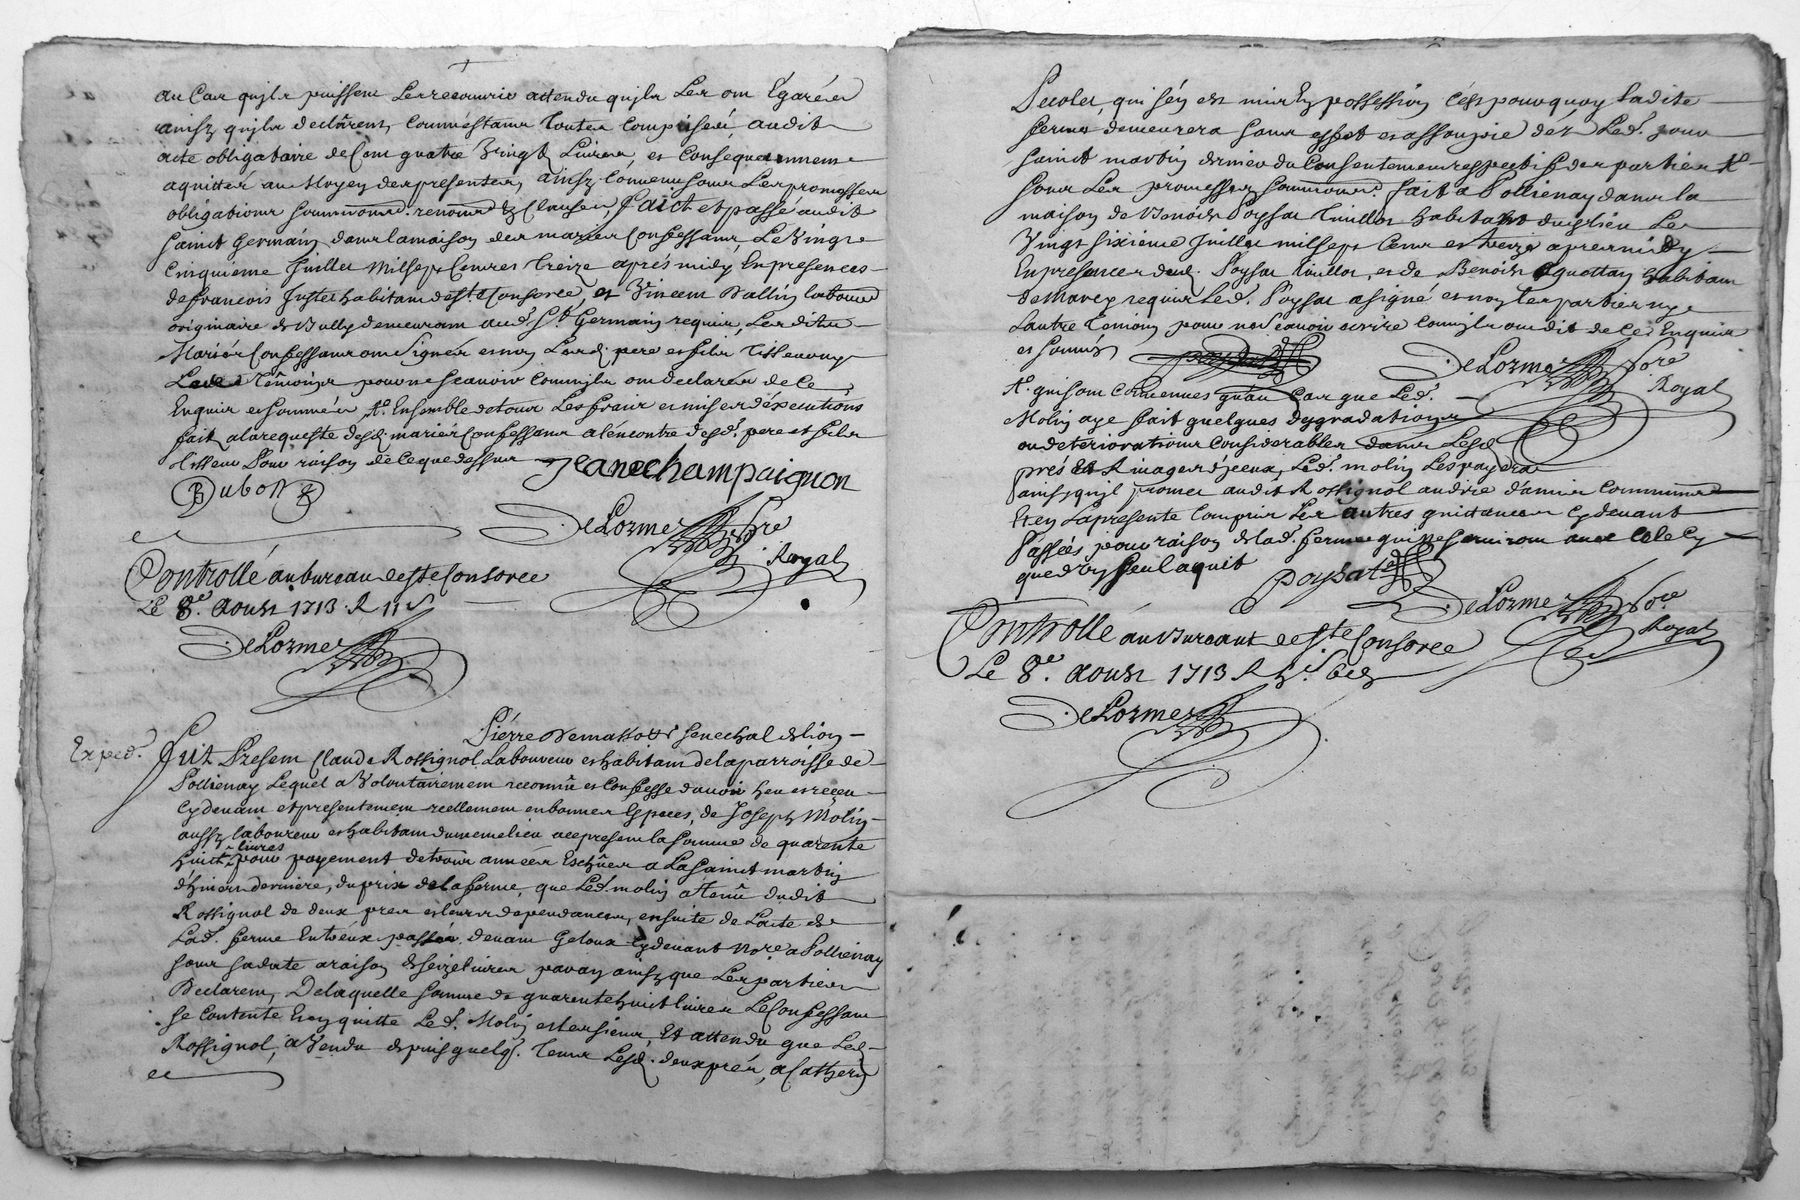 au cas quils puissent les recouvrir attendu quils les ont Egarées
ainsy quils declârent, comme estant toutes comprises, audit
acte obligatoire de Cent quatre Vingt Livres, et Consequemment
aquittés au Moyen des presentes, ainsy convenu sous Les promesses
obligations soumissions renons. & Clauses, faict et passé audit
sainct Germain dans la maison des mariés Confessans, Le Vingt
Cinquieme Juillet Mil sept Cent et treize aprés midy, En presences
de francois Juste habitant de Ste. Consorce, et Vincent Dallin laboureur
originaire de Bully demeurant aud. St. Germain requis, Lesdits
Mariés Confessans ont Signés et non Lesd. pere et fils Tisseur ny
Lesd. têmoins pour ne scavoir comm'ils ont declarés de ce
Enquis et sommés +. Ensemble de tous Les frais et mises d'éxecutions
fait a la requeste desd. mariés Confessans a l'encontre desd. pere et fils
tisseur Pour raison de ce que dessus
Jeane champaignon
Dubost
DeLorme Nore
Royal
Controllé au bureau de Ste Consorce
Le 8e. Aoust 1713. R 11 s
DeLorme
Pierre Dematots senechal de lion
Exped.
Fut Present Claude Rossignol Laboureur et habitant de la parroisse de
Pollienay Lequel a Volontairement reconnû et Confesse d'avoir heu et receu
cy devant et presentement reellement en bonnes Especes, de Joseph Molin
aussy laboureur et habitant du meme lieu a ce present la somme de quarente
livres
huict pour payement de trois années Eschûes a La sainct martin
d'hiver derniere, du prix de la ferme, que Led. molin a tenû dudit
Rossignol de deux prés et leurs dependances, ensuite de L'acte de
Lad. ferme Entreux passée devant Geloux cy devant Nore. a Pollienay
sous sa date a raison de seize livres par an ainsy que Les parties
Declarent, De laquelle somme de quarente huict livres Le Confessant
se Contente En quitte Led. Molin et les siens, Et attendu que Led.
Rossignol, a Vendu depuis quelq. temps Lesd. deux prés, a Catherin
Pecolet, qui s'en est mis En possession c'est pourquoy Ladite
ferme demeurera sans effet et assoupie dés Led. jour
sainct martin dernier du Consentement respectif des parties +
sous Les promesses soumissions. fait a Pollienay dans la
maison de Benoist Poysat Tuillier habitant dud. lieu Le
Vingt sixieme Juillet mil sept Cent et treize apres midy
En presences dud. Poysat tuillier, et de Benoist habitant
de Marcy requis Led. Poysat a signé et non les parties ny
L'autre temoin pour ne scavoir ecrire comm'ils ont dit de ce Enquis
et sommés
DeLorme Nore
Royal
+. qui sont convenues qu'au cas que Led.
Molin aye fait quelques dygradations
ou deteriorations considerables dans Lesd.
prés Led. molin Les payera
ainsy quil promet audit Rossignol au dire d'amis communs
Et en La presente compris Les autres quittances cy devant
Passées pour raison de lad. ferme qui ne serviront avec celle cy
que d'un seul aquit
poysat
DeLorme Nore
Royal
Controllé au Bureaut de Ste Consorce
Le 8e. Aoust 1713 R
DeLorme